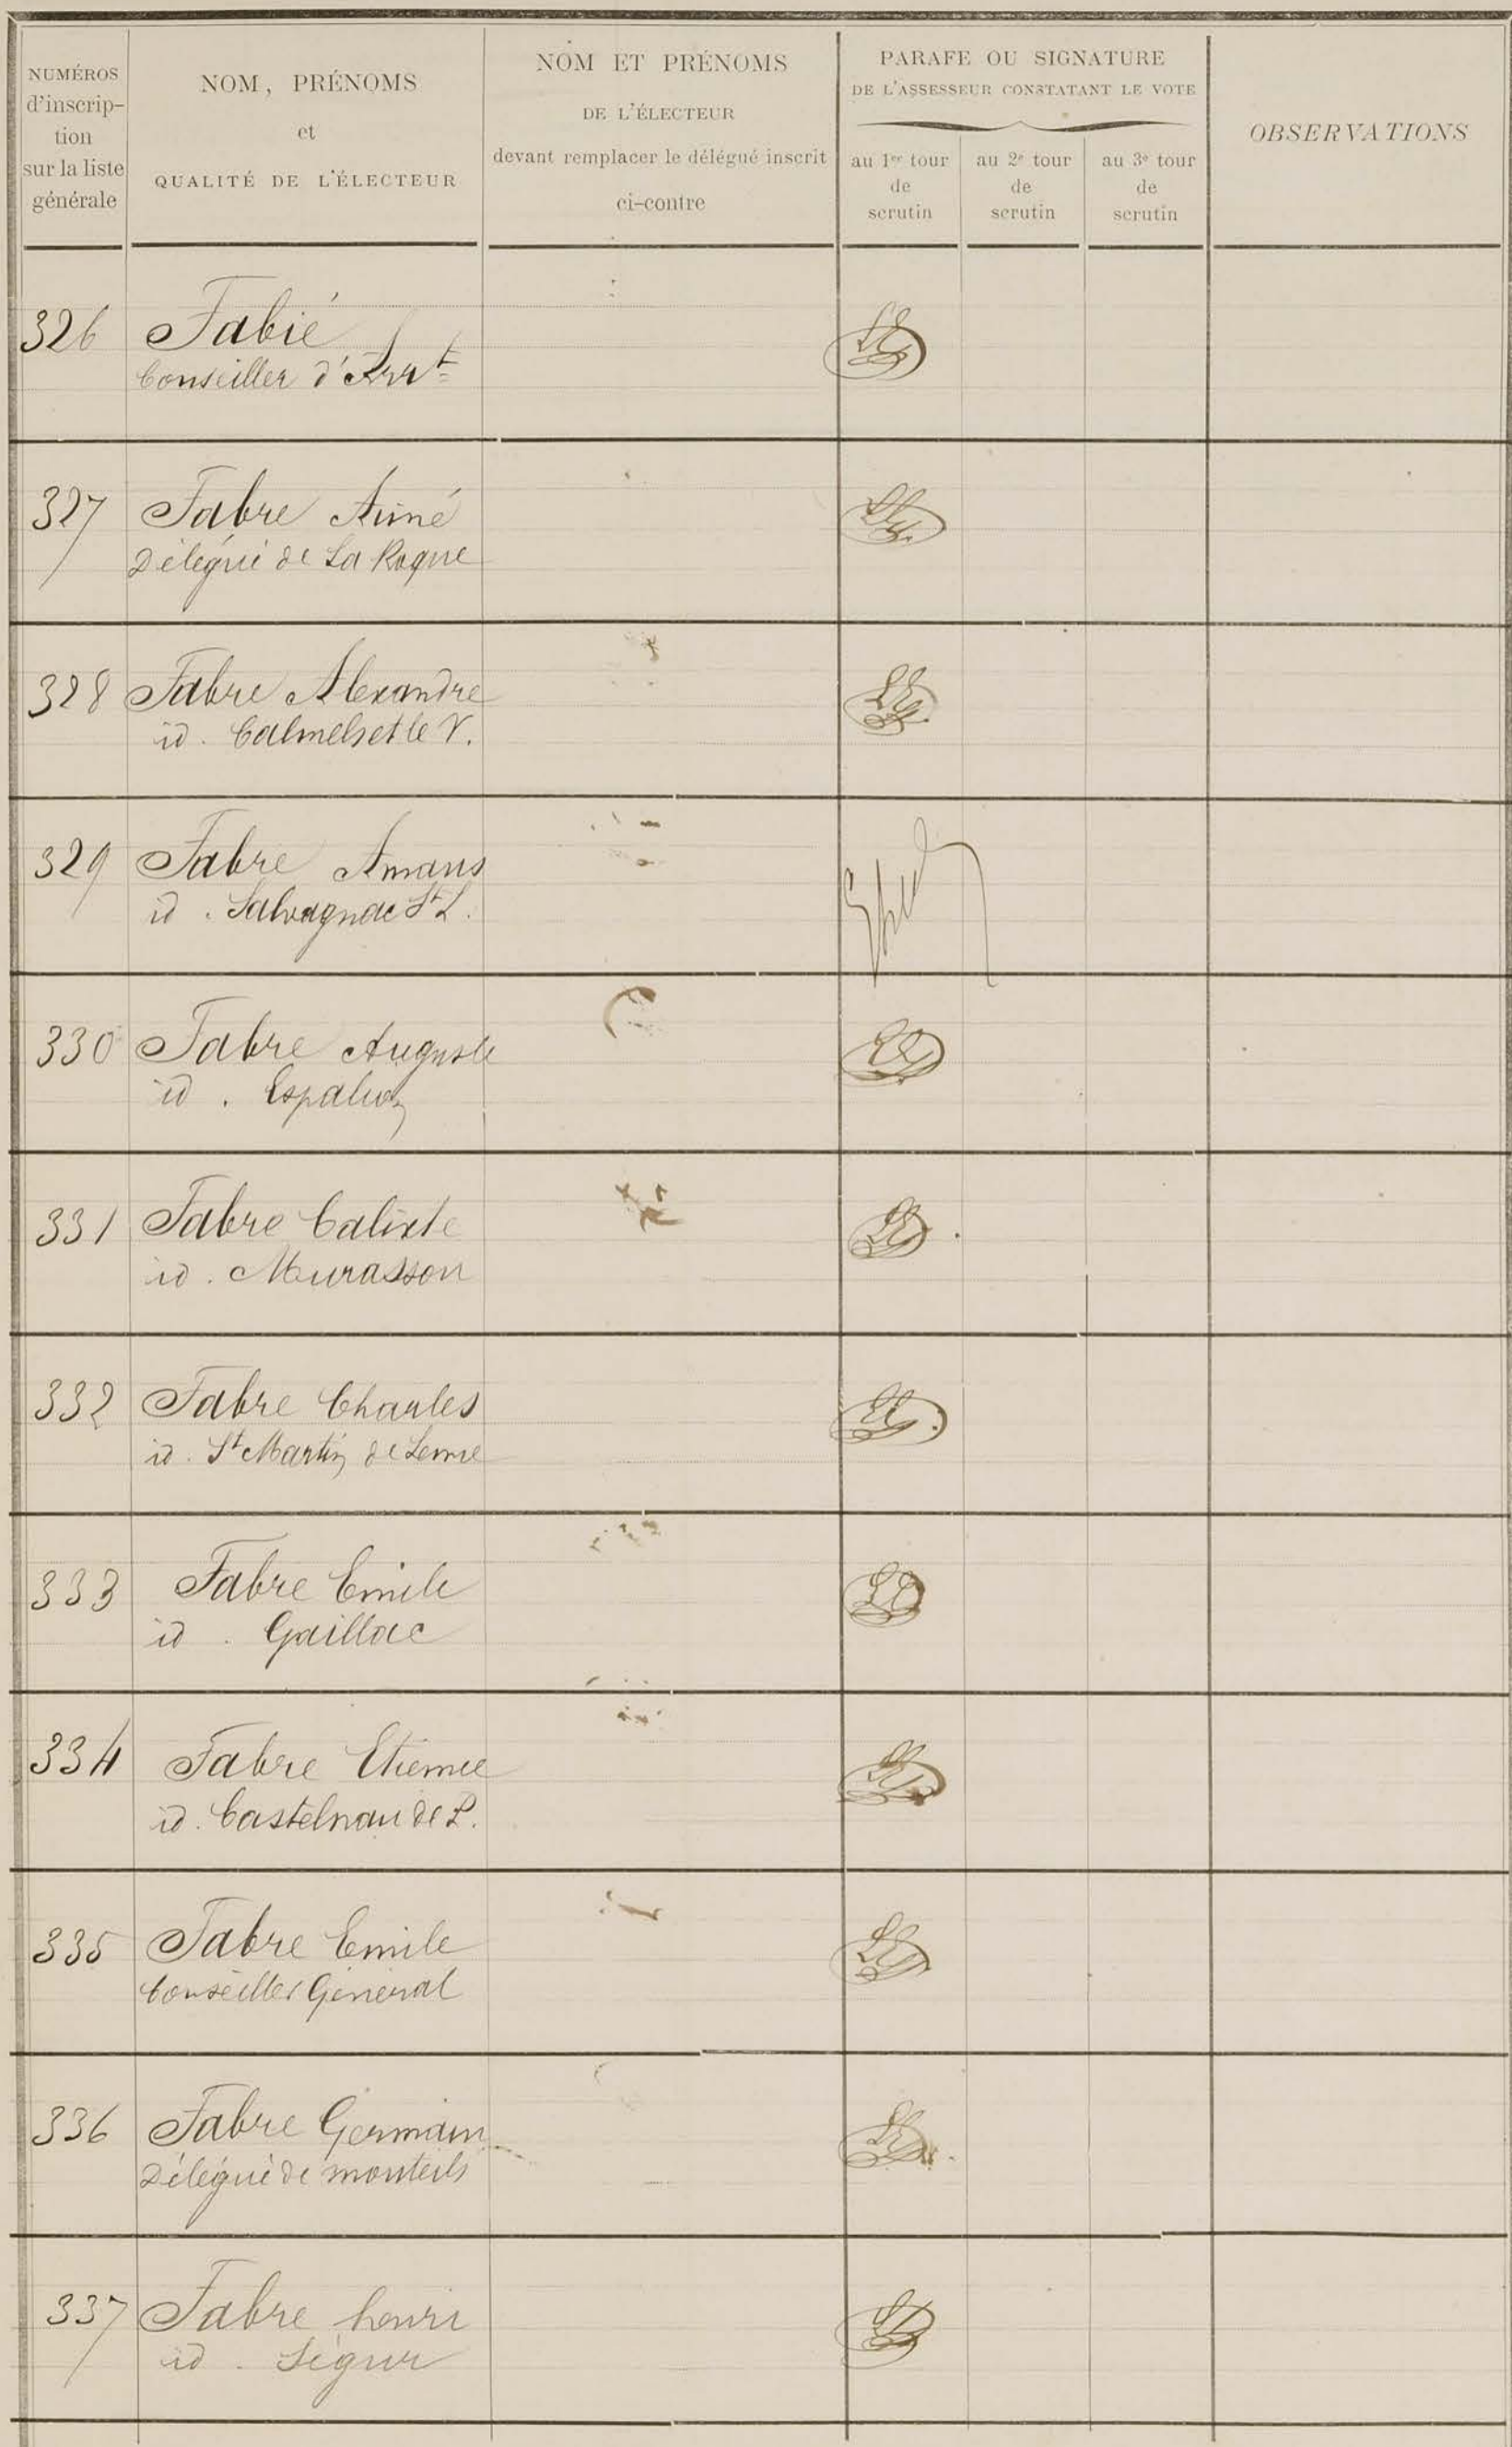 NUMÉROS
d'inscrip-
tion
sur la liste
générale
NOM, PRÉNOMS
et
QUALITÉ DE L'ÉLECTEUR
NOM ET PRÉNOMS
DE L'ÉLECTEUR
devant remplacer le délégué inscrit
ci-contre
PARAFE OU SIGNATURE
DE L'ASSESSEUR CONSTATANT LE VOTE
au 1er tour
de
scrutin
au 2e tour
de
scrutin
au 3e tour
de
scrutin
OBSERVATIONS
326 Fabié
Conseiller d'Arrt
327 Fabre Aimé
Délégué de La Roque
328 Fabre Alexandre
id. Calmels et le V.
329 Fabre Amans
id. Salvagnac St L.
330 Fabre Auguste
id. Espalion
331 Fabre Calixte
id. Murasson
332 Fabre Charles
id. St Martin de Lenne
333 Fabre Emile
id. Gaillac
334 Fabre Etienne
id. Castelnau de P.
335 Fabre Emile
Conseiller Général
336 Fabre Germain
Délégué de monteils
337 Fabre henri
id. Ségur